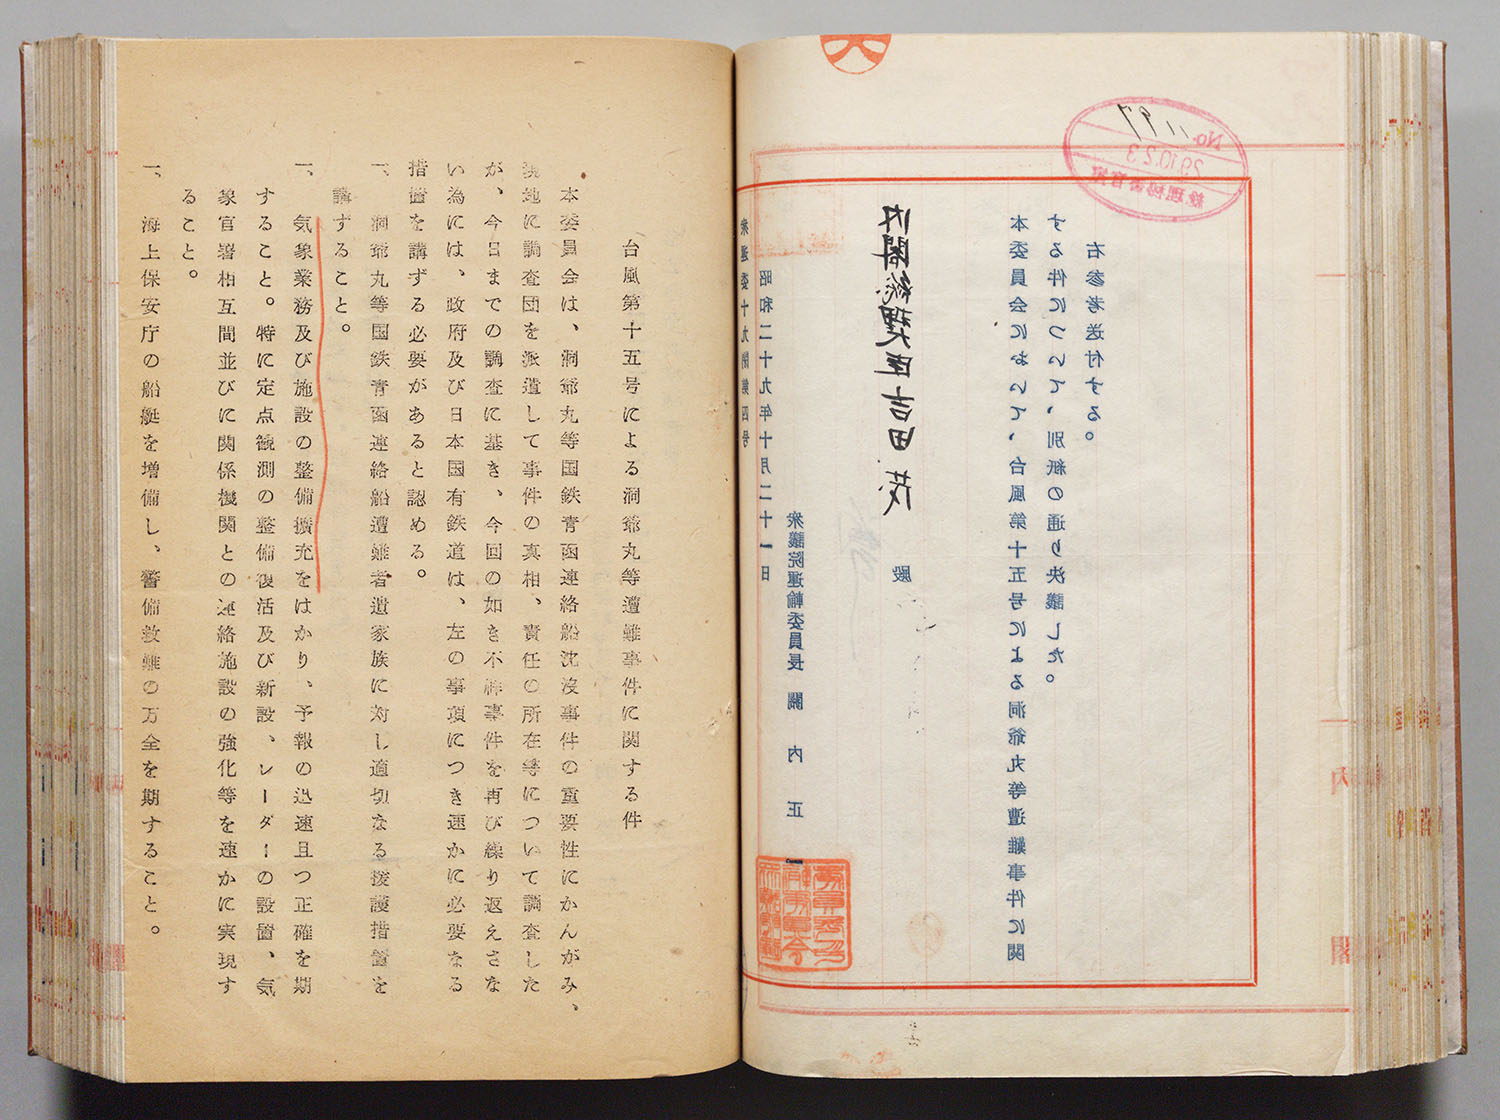 No. 1197
29.10.23
衆運委十九閉第四号
昭和二十九年十月二十一日
衆議院運輸委員長 關内正一
内閣総理大臣吉田茂 殿
本委員会において、台風第十五号による洞爺丸等遭難事件に関
する件について、別紙の通り決議した。
右参考送付する。
内閣
台風第十五号による洞爺丸等遭難事件に関する件
本委員会は、洞爺丸等国鉄青函連絡船沈没事件の重要性にかんがみ、
現地に調査団を派遣して事件の真相、責任の所在等について調査した
が、今日までの調査に基き、今回の如き不祥事件を再び繰り返えさな
い為には、政府及び日本国有鉄道は、左の事項につき速かに必要なる
措置を講ずる必要があると認める。
一、洞爺丸等国鉄青函連絡船遭難者遺家族に対し適切なる援護措置を
講ずること。
一、気象業務及び施設の整備擴充をはかり、予報の迅速且つ正確を期
すること。特に定点観測の整備復活及び新設、レーダーの設置、気
象官署相互間並びに関係機関との連絡施設の強化等を速かに実現す
ること。
一、海上保安庁の船艇を増備し、警備救難の万全を期すること。